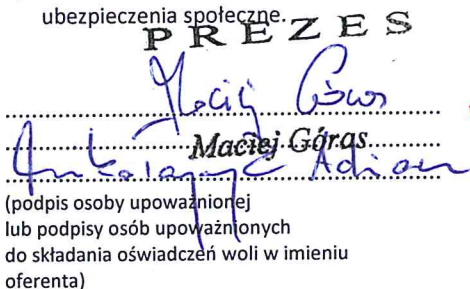 ubezpieczenia społeczne.
PREZES
Maciej Góras
Maciej Góras
Adrian
(podpis osoby upoważnionej
lub podpisy osób upoważnionych
do składania oświadczeń woli w imieniu
oferenta)